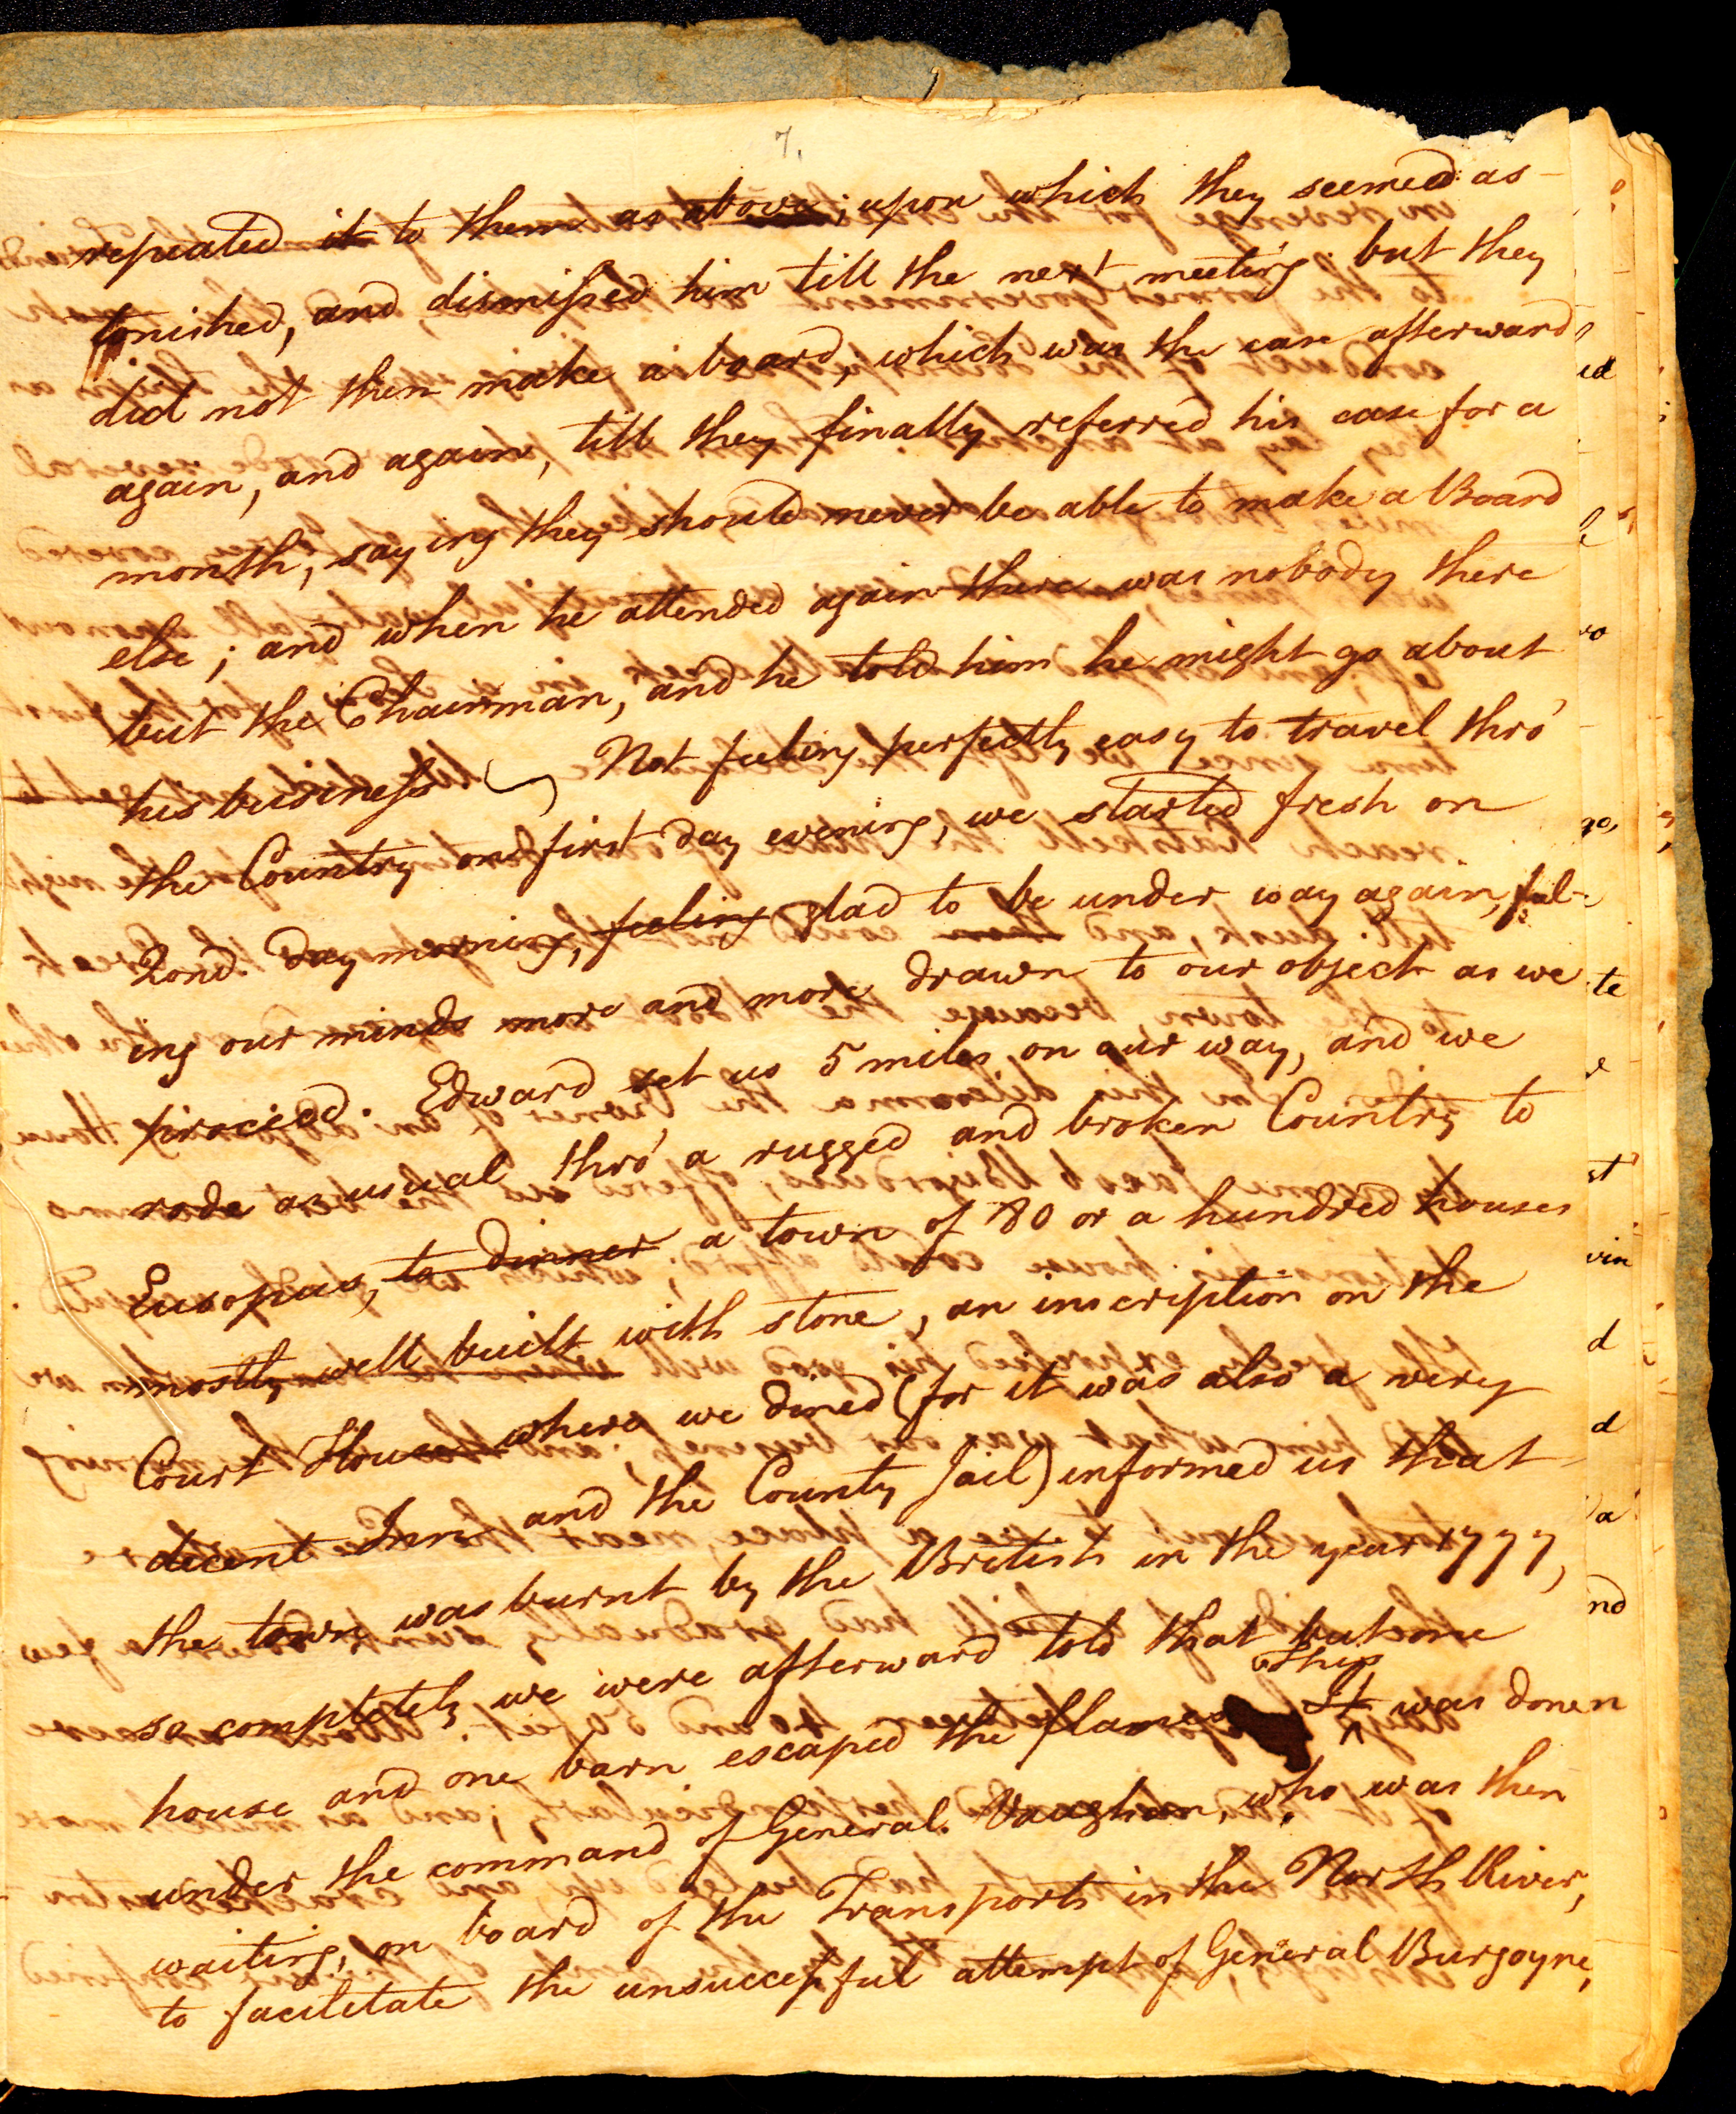 7.
repeated it to them as above; upon which they seemed as-
tonished, and dismissed him till the next meeting: but they
did not then make a board, which was the case afterward
again, and again, till they finally referred his case for a
month, saying they should never be able to make a Board
else; and when he attended again there was nobody there
but the Chairman, and he told him he might go about
his business — Not feeling perfectly easy to travel thro'
the Country on first day evening, we started fresh on
2ond. day morning, feeling glad to be under way again, feel-
ing our minds more and more drawn to our object as we
proceed. Edward set us 5 miles on our way, and we
rode as usual thro' a rugged and broken Country to
Eusopus, to dinner a town of 80 or a hundred houses
mostly well built with stone, an inscription on the
Court House where we dined (for it was also a very
decent Inn and the County Jail) informed us that
the town was burnt by the British in the year 1777,
so completely we were afterward told that but one
house and one barn escaped the flames It ^ This was done
under the command of General Vaughan, who was then
waiting, on board of the Transports in the North River,
to facilitate the unsuccessful attempt of General Burgoyne,